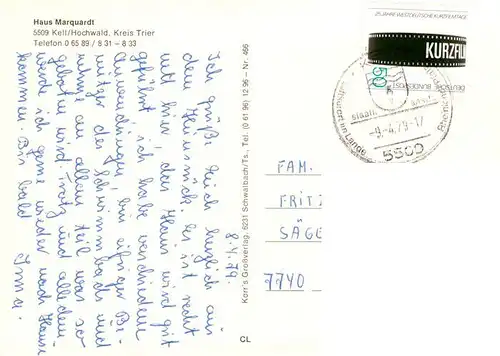 Haus Marquardt
5509 Kell/Hochwald, Kreis Trier
Telefon 0 65 89 / 8 31 – 8 33
8.4.79.
Ich grüße Euch herzlich aus
dem Hunsrück. Es ist recht
nett hier, das Haus wird gut
geführt, ich habe verschiedene
Anwendungen, bin eifriger Be-
des Schwimmbads und
nehme an allem teil was so
geboten wird. Trotz und alledem
werde ich gerne wieder nach Hause
kommen. Bis bald
Irma.
Korr's Großverlag, 6231 Schwalbach/Ts., Tel. (0 61 96) 12 96 – Nr. 466
CL
25 JAHRE WESTDEUTSCHE KURZFILMTAGE
KURZFIL
50
DEUTSCHE BUNDESPOST
staatl.
-9.-4.79-17
5500
FAM.
FRITZ
SÄGE
7740